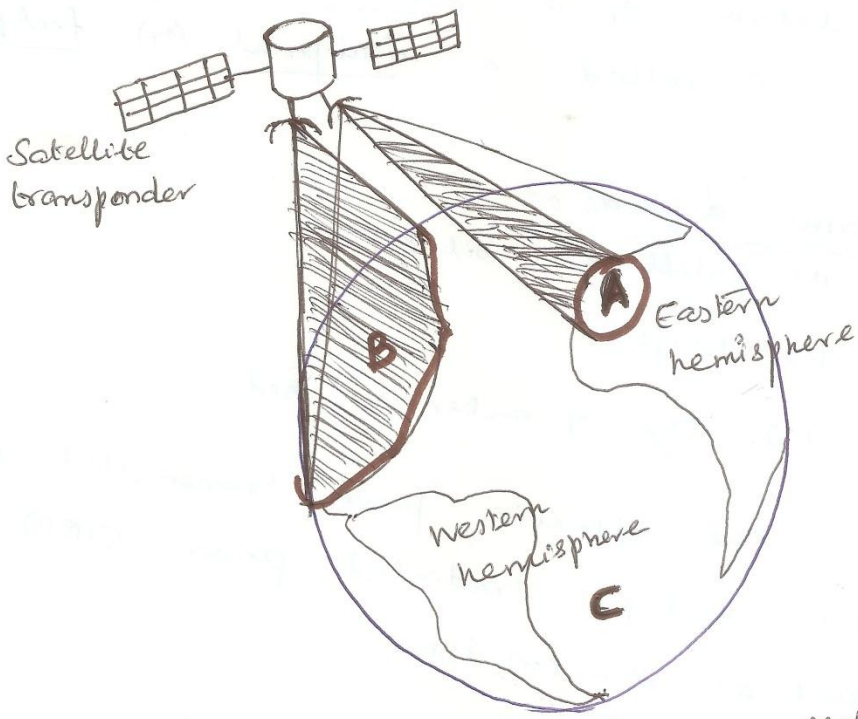 Satellite
transponder
A
Eastern
hemisphere
B
Western
hemisphere
C